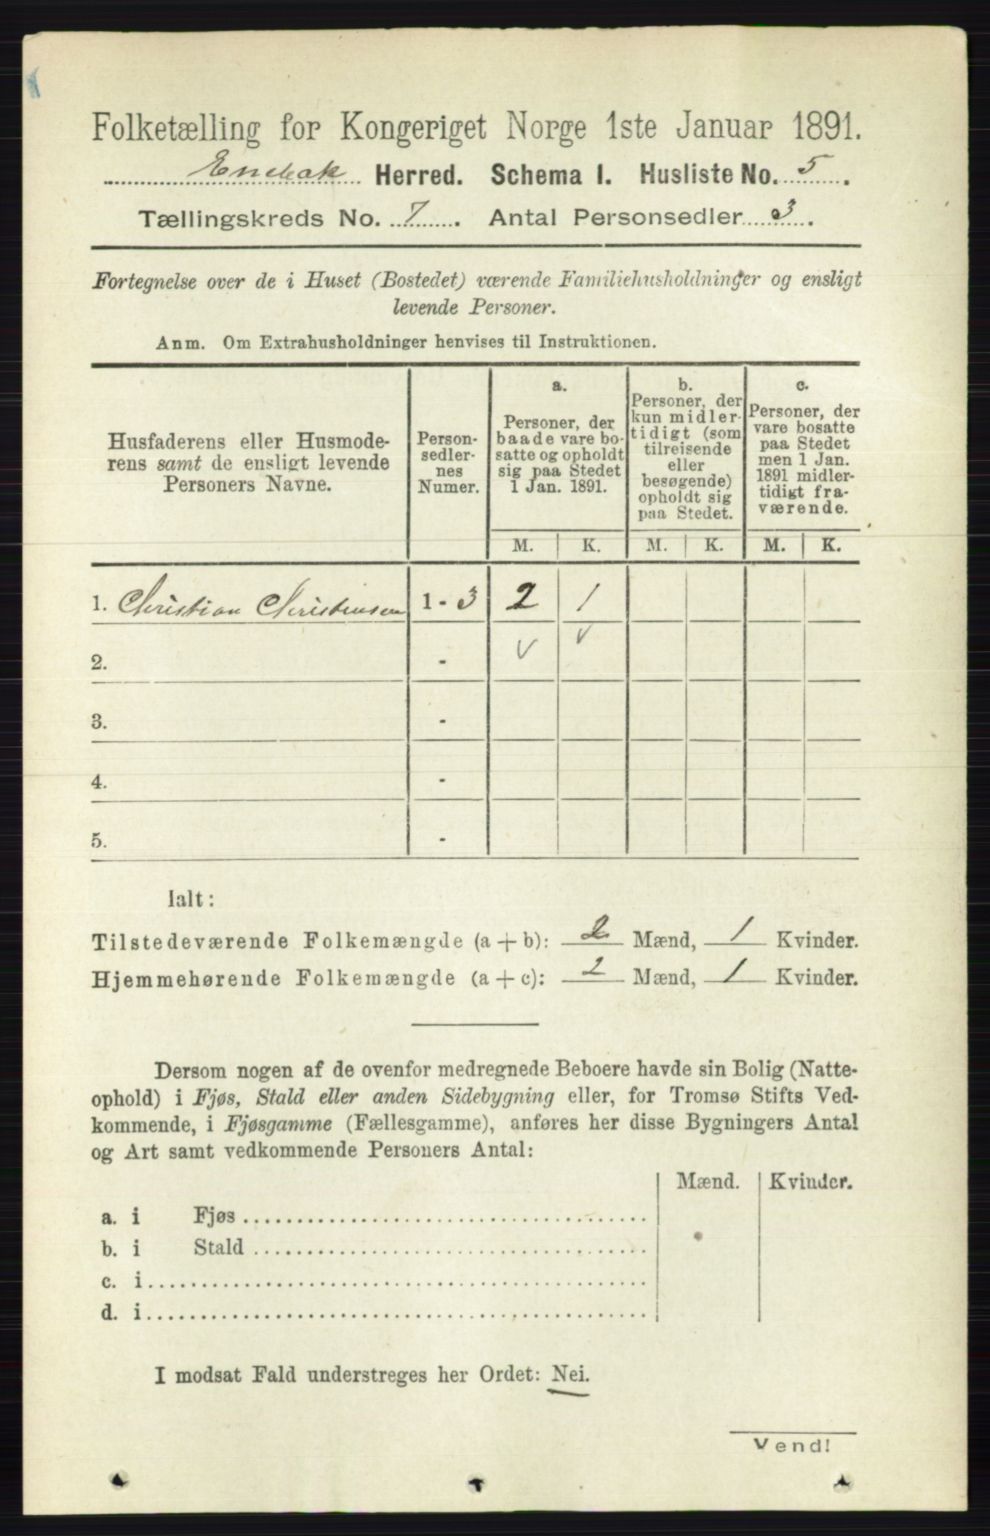 Folketælling for Kongeriget Norge 1ste Januar 1891.
Enebak Herred. Schema I. Husliste No. 5.
Tællingskreds No. 7. Antal Personsedler 3.
Fortegnelse over de i Huset (Bostedet) værende Familiehusholdninger og ensligt
levende Personer.
Anm. Om Extrahusholdninger henvises til Instruktionen.
Husfaderens eller Husmode-
rens samt de ensligt levende
Personers Navne.
Person-
sedler-
nes
Numer.
a.
Personer, der
baade vare bo-
satte og opholdt
sig paa Stedet
1 Jan. 1891.
b.
Personer, der
kun midler-
tidigt (som
tilreisende
eller
besøgende)
opholdt sig
paa Stedet.
c.
Personer, der
vare bosatte
paa Stedet
men 1 Jan.
1891 midler-
tidigt fra-
værende.
M. K. M. K. M. K.
1. Christian Christensen 1 - 3 2 1
2. - v v
3. -
4. -
5. -
Ialt:
Tilstedeværende Folkemængde (a + b): 2 Mænd, 1 Kvinder.
Hjemmehørende Folkemængde (a + c): 2 Mænd, 1 Kvinder.
Dersom nogen af de ovenfor medregnede Beboere havde sin Bolig (Natte-
ophold) i Fjøs, Stald eller anden Sidebygning eller, for Tromsø Stifts Ved-
kommende, i Fjøsgamme (Fællesgamme), anføres her disse Bygningers Antal
og Art samt vedkommende Personers Antal:
Mænd. Kvinder.
a. i Fjøs
b. i Stald
c. i
d. i
I modsat Fald understreges her Ordet: Nei.
Vend!